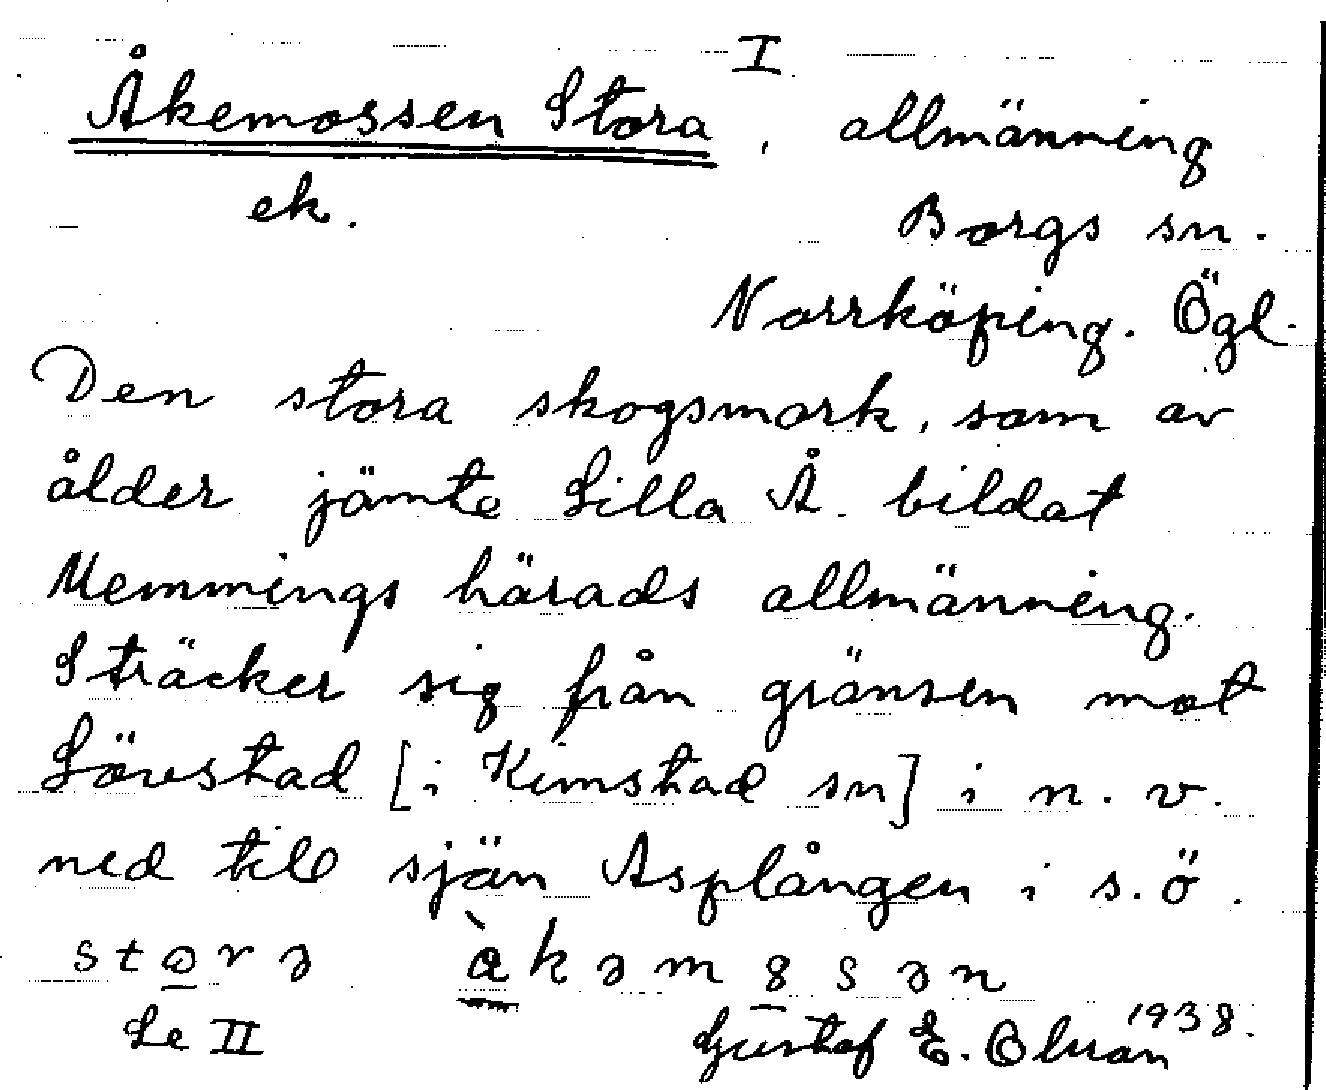 I
Åkemossen Stora, allmänning
ek. Borgs sn.
Norrköping. Ögl.
Den stora skogsmark, som av
ålder jämte Lilla Å. bildat
Memmings härads allmänning.
Sträcker sig från gränsen mot
Lövstad [i Kimstad sn] i n. v.
ned till sjön Asplången i s.ö.
Se II Gustaf E. Olsson 1938.